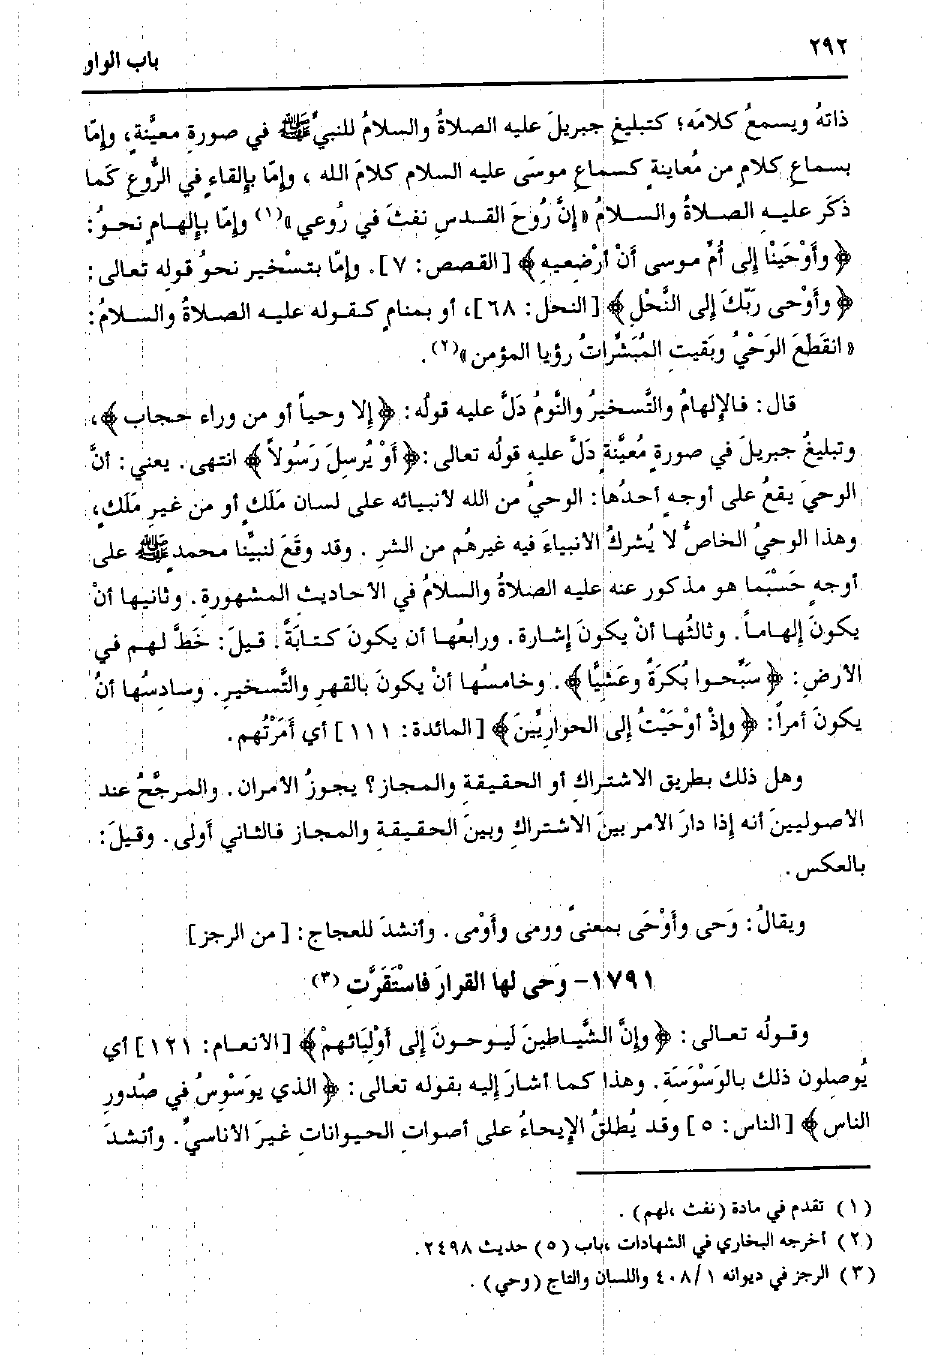 ٢٩٢
باب الواو
ذاتهُ ويسمعُ كلامَه؛ كتبليغِ جبريلَ عليه الصلاةُ والسلامُ للنبيِّ ﷺ في صورةٍ معيَّنةٍ، وإمّا
بسماعِ كلامٍ من مُعاينةٍ كسماعِ موسَى عليه السلام كلامَ الله ، وإمّا بإلقاءٍ في الرُّوعِ كَما
ذكَر عليـهِ الصلاةُ والسـلامُ «إنَّ رُوحَ القدسِ نفثَ في رُوعي»(١) وإمّا بإلهـامٍ نحـوُ:
﴿ وأَوْحَيْنا إلى أُمِّ موسى أنْ أرْضعِيهِ﴾ [القصص: ٧]. وإمّا بتسْخيرٍ نحوُ قولِه تعالى:
﴿ وأَوْحى ربّكَ إلى النَّحْلِ﴾ [النحل: ٦٨]، أو بمنامٍ كـقـوله عليـه الصلاةُ والسـلامُ:
«انقَطَعَ الوَحْيُ وبَقيتِ المُبَشِّراتُ رؤيا المؤمن»(٢).
قال: فـالإلهامُ والتَّسخيرُ والنَّومُ دَلَّ عليه قولُه: ﴿إلا وحياً أو من وراء حجاب﴾،
وتبليغُ جبريلَ في صورةٍ مُعيَّنةٍ دَلَّ عليهِ قولُه تعالى: ﴿أوْ يُرسِلَ رَسُولاً﴾ انتهى. يعني: أنَّ
الوحيَ يقعُ على أوجهٍ أحدُها: الوحيُ من الله لأنبيائه على لسان مَلَكٍ أو من غيرِ مَلَكٍ،
وهذا الوحيُ الخاصُّ لا يُشركُ الأنبياءَ فيه غيرهُم من الشرِ . وقد وقَعَ لنبيِّنا محمدٍ ﷺ على
أوجهٍ حَسْبَما هو مذكور عنه عليه الصلاةُ والسلامُ في الأحاديثِ المشهورةِ. وثانيها أنْ
يكونَ إلهاماً. وثالثُها أنْ يكونَ إشارة. ورابعُها أن يكونَ كتابَةً. قيلَ: خَطَّ لهم في
الأرضِ: ﴿ سَبِّحوا بُكرَةً وعَشيًّا﴾. وخامسُها أنْ يكونَ بالقهرِ والتَّسخيرِ. وسادِسُها أنْ
يكونَ أمراً: ﴿ وإذْ أوْحَيْتُ إلى الحواريِّينَ﴾ [المائدة: ١١١] أي أمَرْتُهم.
وهل ذلك بطريق الاشتراكِ أو الحقيقةِ والمجاز؟ يجوزُ الأمران. والمرجَّحُ عند
الأصوليينَ أنه إذا دارَ الأمر بينَ الاشتراكِ وبينَ الحقيقةِ والمجاز فالثاني أولى. وقيلَ:
بالعكس.
ويقالُ: وَحى وأَوْحَى بمعنىً وومى وأَوْمى. وأنشدَ للعجاج: [من الرجز]
١٧٩١- وَحَى لها القرارَ فاسْتَقَرَّتِ (٣)
وقـولُه تعـالى: ﴿ وإنَّ الشَّيـاطينَ لَيـوحـونَ إلى أَوْلِيَائهمْ﴾ [الأنعـام: ١٢١] أي
يُوصلون ذلك بالوَسْوَسَة. وهذا كما أشارَ إليه بقوله تعالى: ﴿ الذي يوَسْوِسُ في صُدورِ
الناس﴾ [الناس: ٥] وقد يُطلقُ الإيحاءُ على أصواتِ الحيواناتِ غيرَ الأناسيِّ. وأنشدَ
(١) تقدم في مادة (نفث ،لهم) .
(٢) أخرجه البخاري في الشهادات ،باب (٥) حديث ٢٤٩٨.
(٣) الرجز في ديوانه ٤٠٨/١ واللسان والتاج (وحي) .